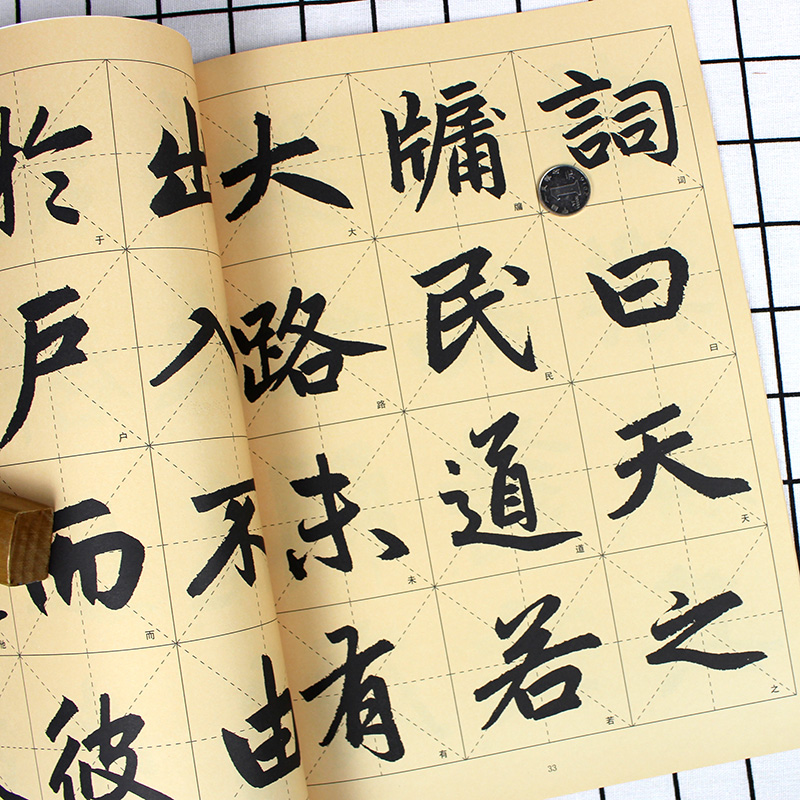 詞曰天之
牖民道若
大路未有
出入不由
於户而彼
词
曰
天
之
牖
民
道
若
大
路
未
有
于
户
而
他
33